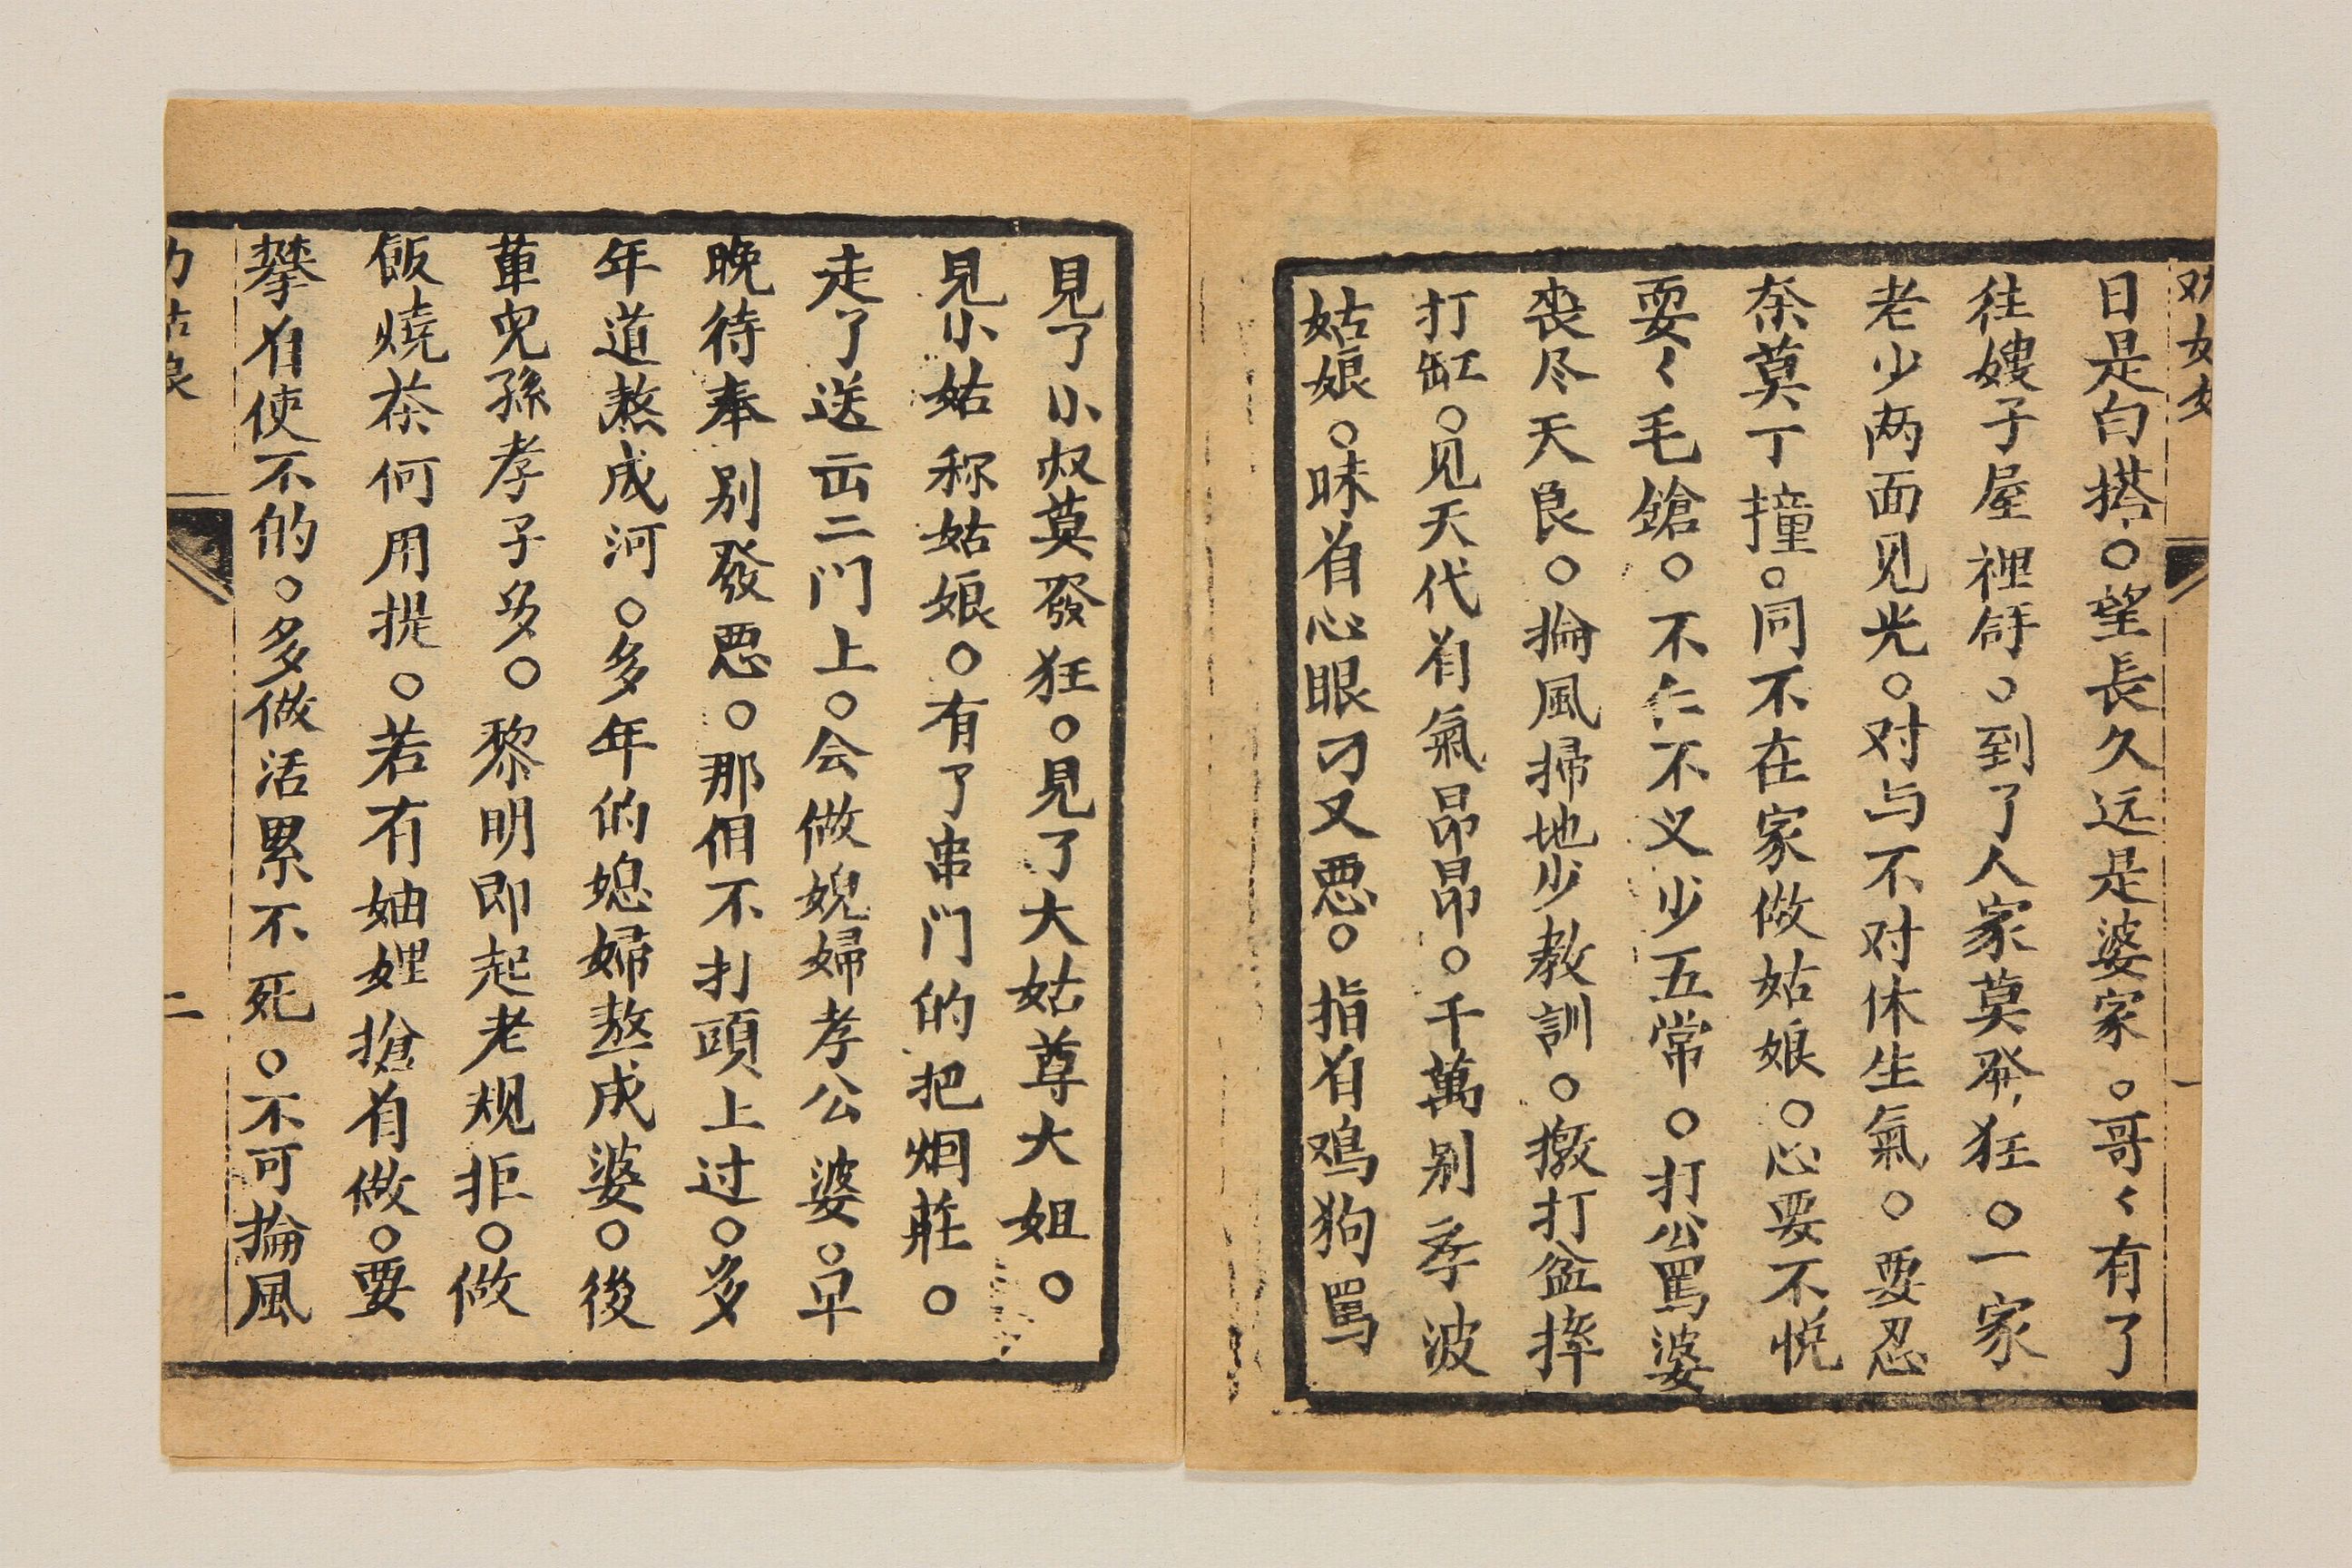 日是白搭。望長久远是婆家。哥〻有了
往嫂子屋裡𠕅。到了人家莫発狂。一家
老少两面见光。对与不对休生氣。要忍
奈莫丁撞。同不在家做姑娘。心要不悦
耍〻毛鎗。不仁不义少五常。打公罵婆
丧尽天良。掄風掃地少教訓。撴打盆摔
打缸。见天代有氣昂昂。千萬别孝波
姑娘。昧着心眼刁又恶。指着鸡狗罵
見了小叔莫發狂。見了大姑尊大姐。
見小姑称姑娘。有了串门的把烟莊。
走了送出二门上。会做媳婦孝公婆。早
晚待奉别發恶。那佣不打頭上过。多
年道熬成河。多年的媳婦熬成婆。後
軰兒孫孝子多。黎明即起老规拒。做
飯燒茶何用提。若有妯娌搶着做。要
攀着使不的。多做活累不死。不可掄風
二